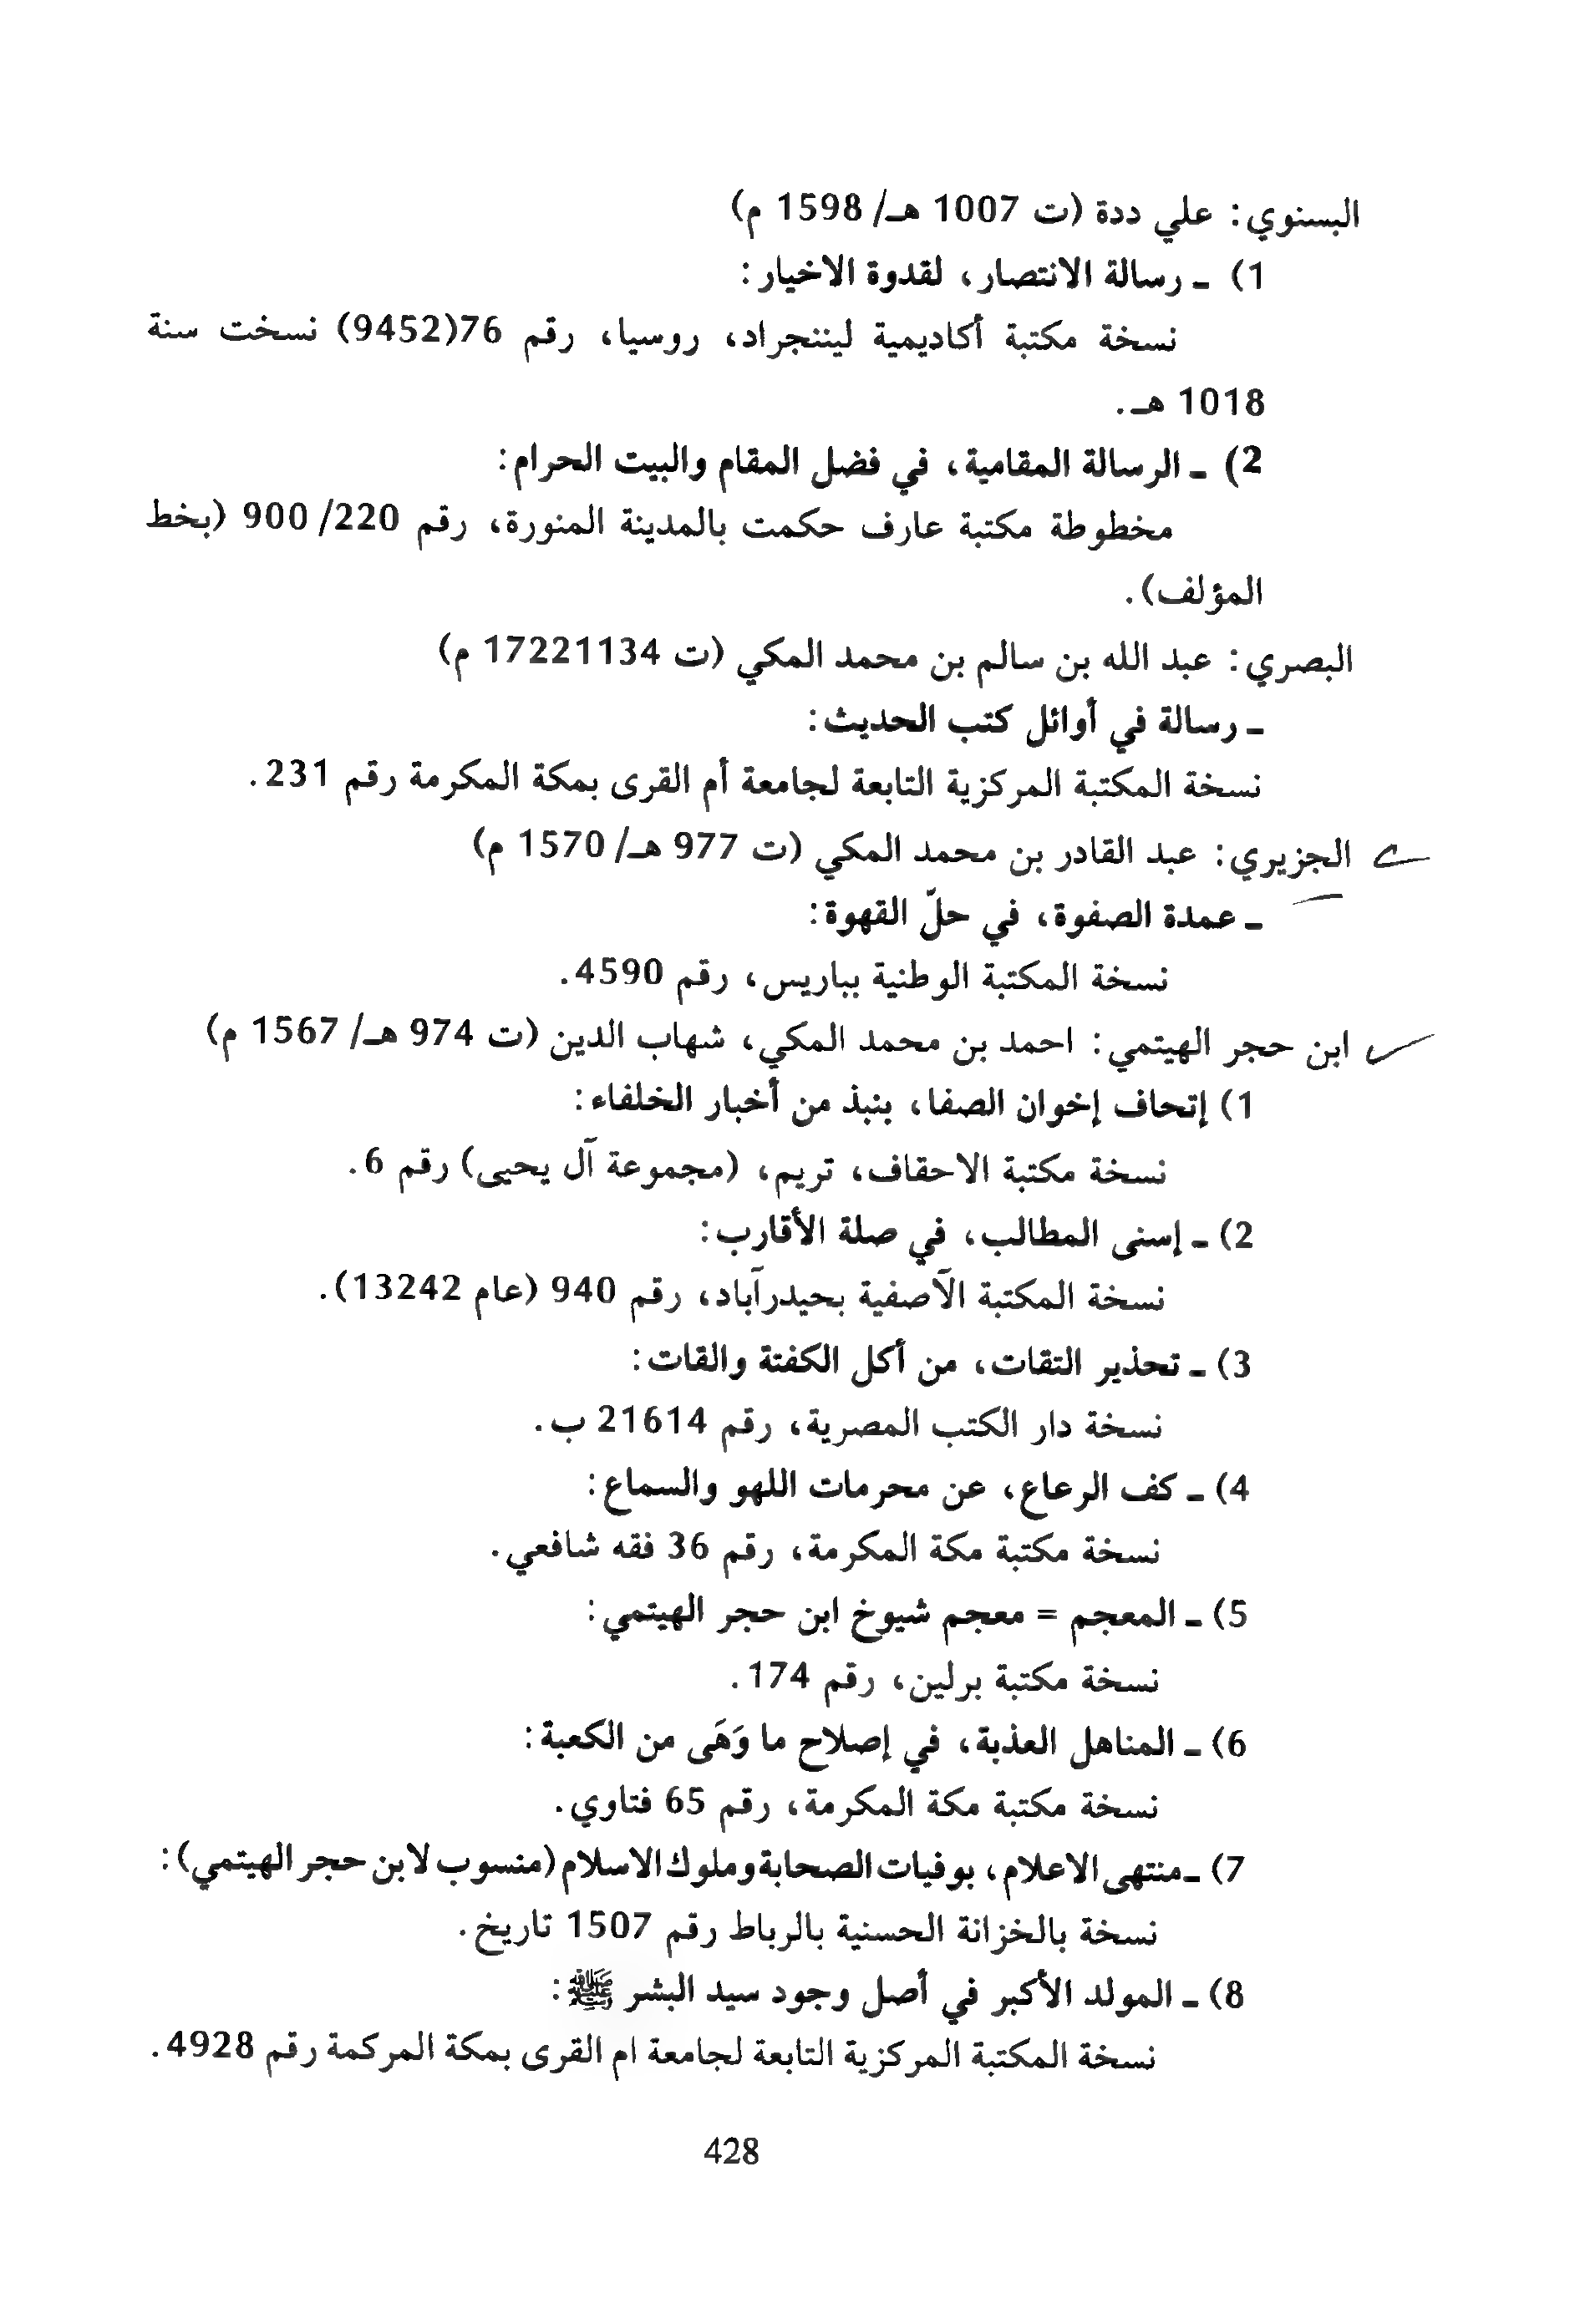 البسنوي: علي ددة (ت 1007 هـ/ 1598 م)
1) ـ رسالة الانتصار، لقدوة الاخيار:
نسخة مكتبة أكاديمية ليننجراد، روسيا، رقم 76(9452) نسخت سنة
1018 هـ.
2) ـ الرسالة المقامية، في فضل المقام والبيت الحرام:
مخطوطة مكتبة عارف حكمت بالمدينة المنورة، رقم 220/ 900 (بخط
المؤلف).
البصري: عبد الله بن سالم بن محمد المكي (ت 17221134 م)
ـ رسالة في أوائل كتب الحديث:
نسخة المكتبة المركزية التابعة لجامعة أم القرى بمكة المكرمة رقم 231.
الجزيري: عبد القادر بن محمد المكي (ت 977 هـ/ 1570 م)
ـ عمدة الصفوة، في حلّ القهوة:
نسخة المكتبة الوطنية بباريس، رقم 4590.
ابن حجر الهيتمي: احمد بن محمد المكي، شهاب الدين (ت 974 هـ/ 1567 م)
1) إتحاف إخوان الصفا، بنبذ من أخبار الخلفاء:
نسخة مكتبة الاحقاف، تريم، (مجموعة آل يحيى) رقم 6.
2) ـ إسنى المطالب، في صلة الأقارب:
نسخة المكتبة الآصفية بحيدرآباد، رقم 940 (عام 13242).
3) ـ تحذير التقات، من أكل الكفتة والقات:
نسخة دار الكتب المصرية، رقم 21614 ب.
4) ـ كف الرعاع، عن محرمات اللهو والسماع:
نسخة مكتبة مكة المكرمة، رقم 36 فقه شافعي.
5) ـ المعجم = معجم شيوخ ابن حجر الهيتمي:
نسخة مكتبة برلين، رقم 174.
6) ـ المناهل العذبة، في إصلاح ما وَهَى من الكعبة:
نسخة مكتبة مكة المكرمة، رقم 65 فتاوي.
7) ـ منتهى الاعلام، بوفيات الصحابة وملوك الاسلام (منسوب لابن حجر الهيتمي):
نسخة بالخزانة الحسنية بالرباط رقم 1507 تاريخ.
8) ـ المولد الأكبر في أصل وجود سيد البشر ﷺ:
نسخة المكتبة المركزية التابعة لجامعة ام القرى بمكة المركمة رقم 4928.
428